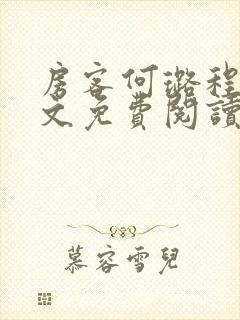 房客何璐程
文免費閱讀
慕容雪兒